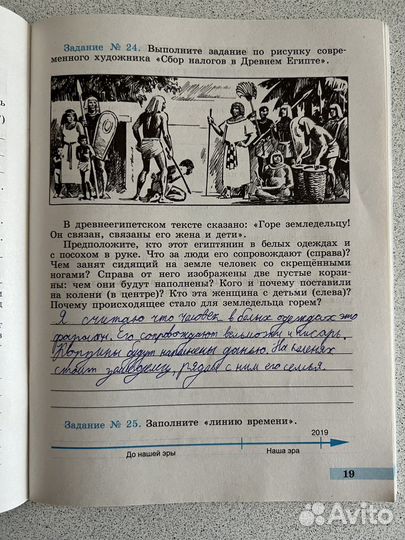 Задание № 24. Выполните задание по рисунку совре-
менного художника «Сбор налогов в Древнем Египте».
В древнеегипетском тексте сказано: «Горе земледельцу!
Он связан, связаны его жена и дети».
Предположите, кто этот египтянин в белых одеждах и
с посохом в руке. Что за люди его сопровождают (справа)?
Чем занят сидящий на земле человек со скрещёнными
ногами? Справа от него изображены две пустые корзи-
ны: чем они будут наполнены? Кого и почему поставили
на колени (в центре)? Кто эта женщина с детьми (слева)?
Почему происходящее стало для земледельца горем?
Я считаю что человек в белых одеждах это
фараон. Его сопровождают вельможи и писарь.
Корзины будут наполнены данью. На коленях
стоит земледелец, рядом с ним его семья.
Задание № 25. Заполните «линию времени».
2019
До нашей эры
Наша эра
19
Avito